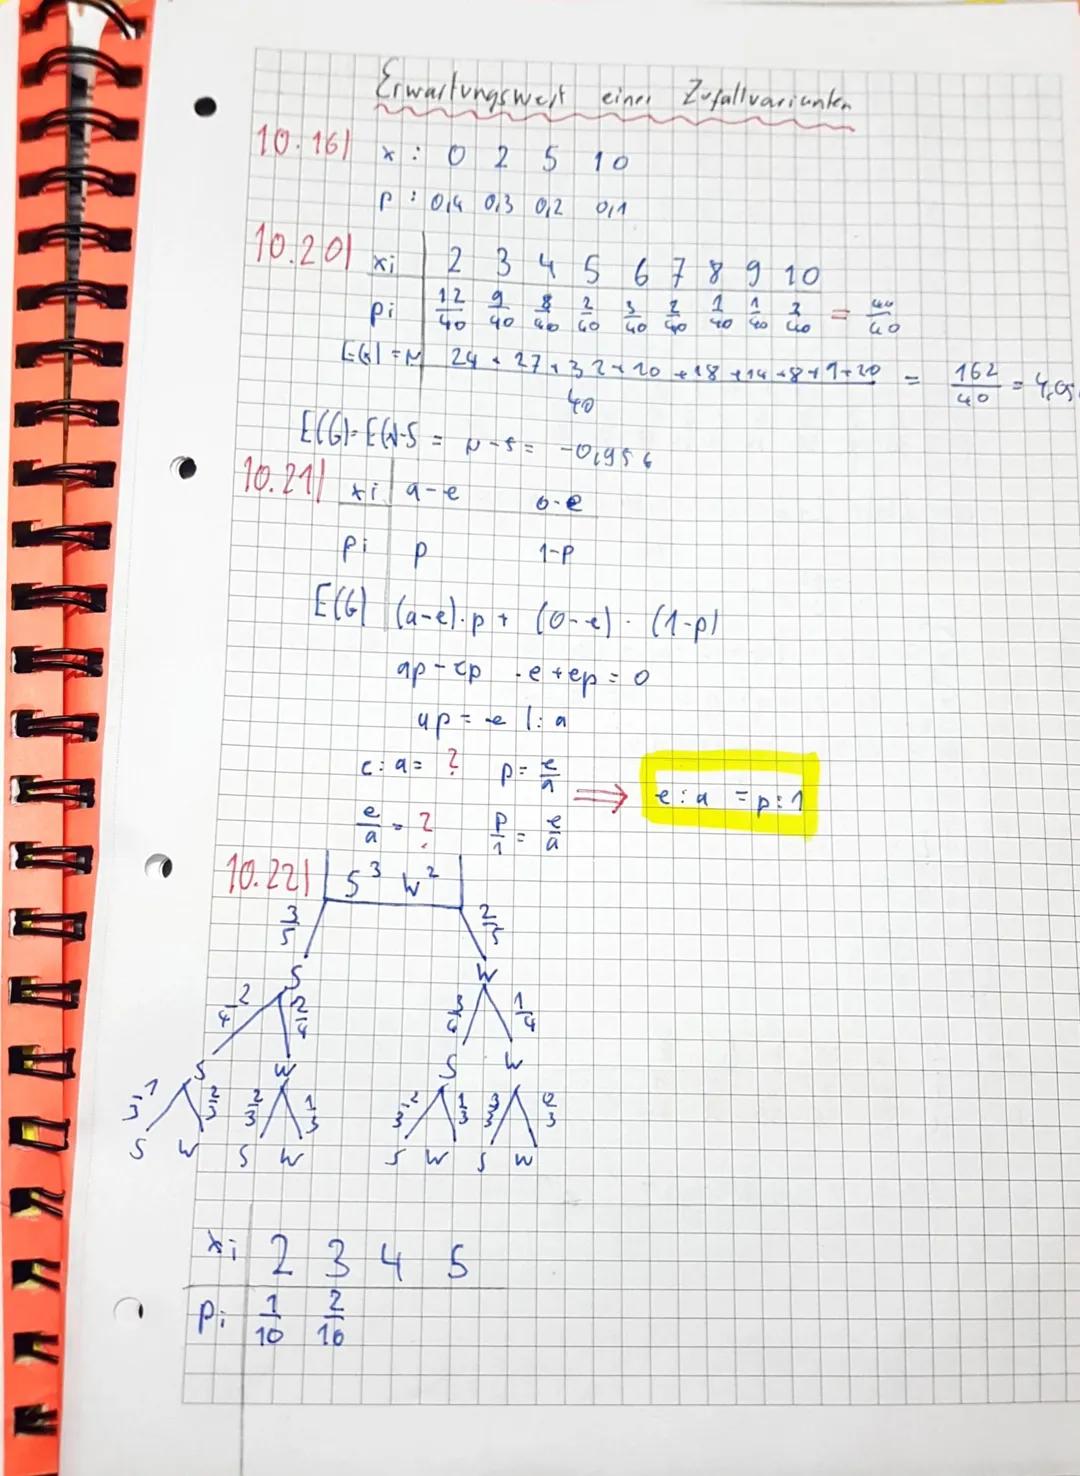 Erwartungswert einer Zufallvarianten
10.16) x : 0 2 5 10
p : 0,4 0,3 0,2 0,1
10.20) xi 2 3 4 5 6 7 8 9 10
pi 12/40 9/40 8/40 2/40 3/40 2/40 1/40 1/40 2/40 = 40/40
E(G) = μ 24 + 27 + 32 + 10 + 18 + 14 + 8 + 9 + 20 / 40 = 162/40 = 4,05
E(G) = E(X)-5 = μ - 5 = -0,95 €
10.21) xi a-e 0-e
pi p 1-p
E(G) (a-e)·p + (0-e) · (1-p)
ap - ep - e + ep = 0
ap = e |: a
e : a = ? p = e/a ⟹ e : a = p : 1
e/a = ? p/1 = e/a
10.22) S³ W²
3/5 2/5
S W
2/4 2/4 3/4 1/4
S W S W
1/3 2/3 2/3 1/3 2/3 1/3 3/3 0/3
S W S W S W S W
xi 2 3 4 5
pi 1/10 2/10